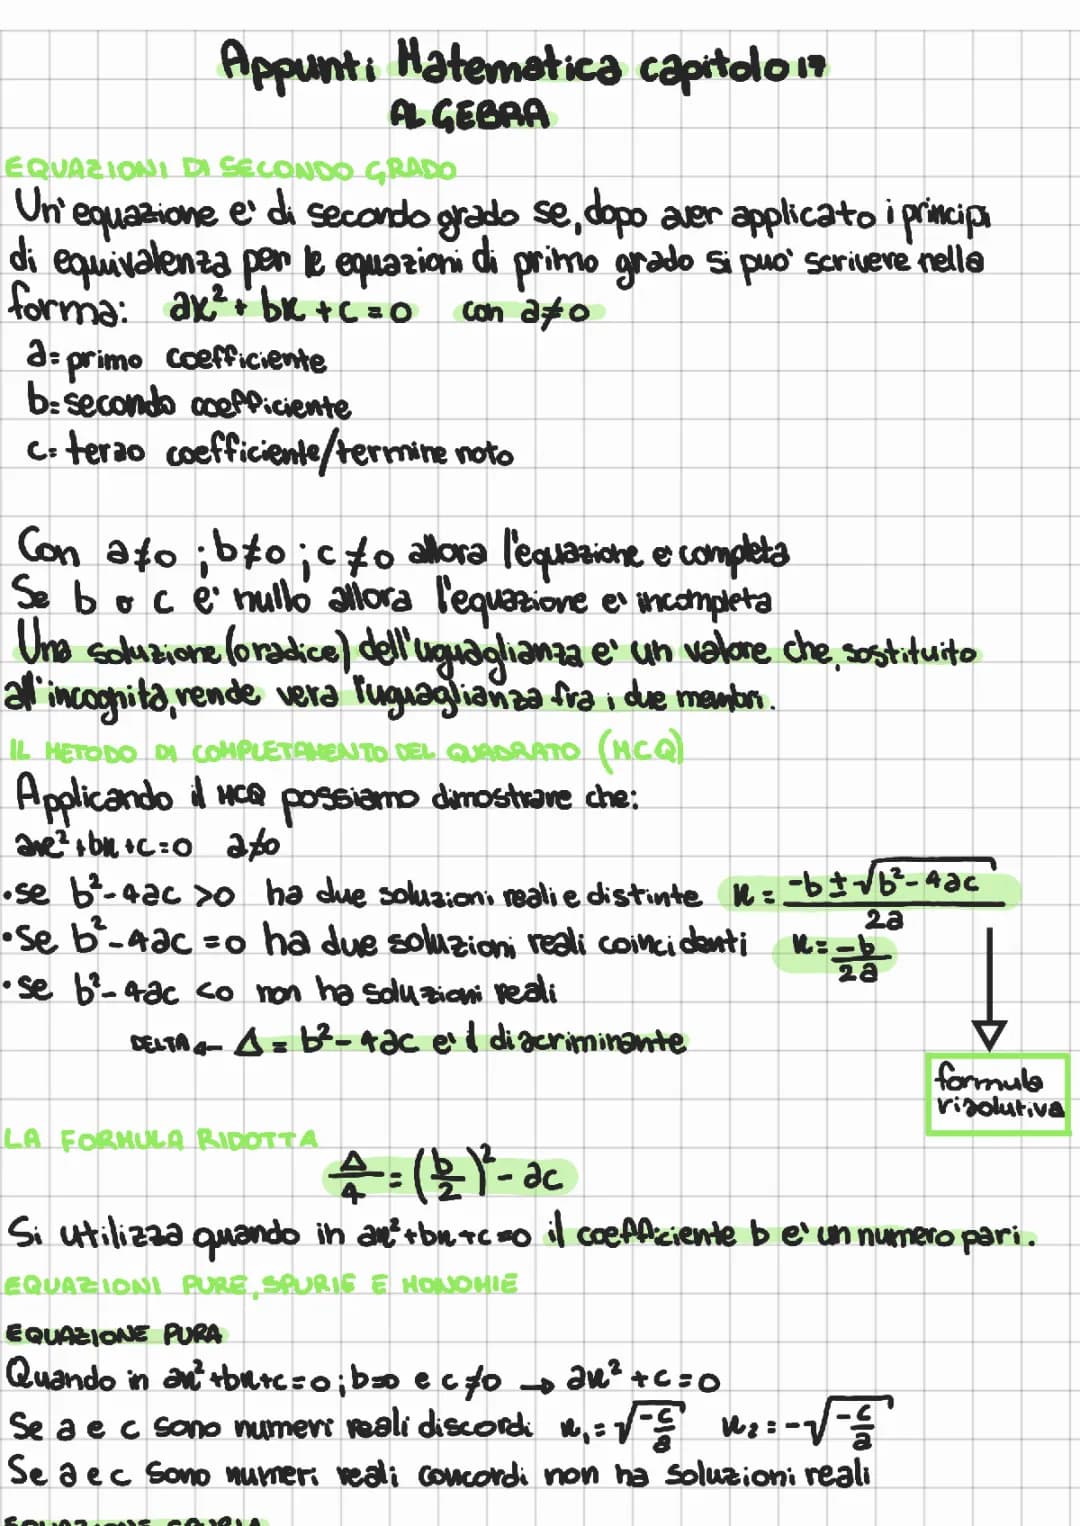 Appunti Matematica capitolo 17
ALGEBRA
EQUAZIONI DI SECONDO GRADO
Un'equazione e' di secondo grado se, dopo aver applicato i principi
di equivalenza per le equazioni di primo grado si puo' scrivere nella
forma: ax² + bx + c = 0 con a≠0
a= primo coefficiente
b= secondo coefficiente
c= terzo coefficiente/termine noto
Con a≠0 ; b≠0 ; c≠0 allora l'equazione e' completa
Se b o c e' nullo allora l'equazione e' incompleta
Una soluzione (o radice) dell'uguaglianza e' un valore che, sostituito
all'incognita, rende vera l'uguaglianza fra i due membri.
IL METODO DI COMPLETAMENTO DEL QUADRATO (MCQ)
Applicando il MCQ possiamo dimostrare che:
ax²+bx+c=0 a≠0
•se b²-4ac >0 ha due soluzioni reali e distinte x = (-b ± √(b²-4ac))/2a
•se b²-4ac =0 ha due soluzioni reali coincidenti x = -b/2a
•se b²-4ac <0 non ha soluzioni reali
DELTA ← Δ = b²-4ac e' il discriminante
formula
risolutiva
LA FORMULA RIDOTTA
Δ/4 = (b/2)² - ac
Si utilizza quando in ax²+bx+c=0 il coefficiente b e' un numero pari.
EQUAZIONI PURE, SPURIE E MONOMIE
EQUAZIONE PURA
Quando in ax²+bx+c=0; b=0 e c≠0 → ax²+c=0
Se a e c sono numeri reali discordi x₁ = √(-c/a) x₂ = -√(-c/a)
Se a e c sono numeri reali concordi non ha soluzioni reali
EQUAZIONE SPURIA